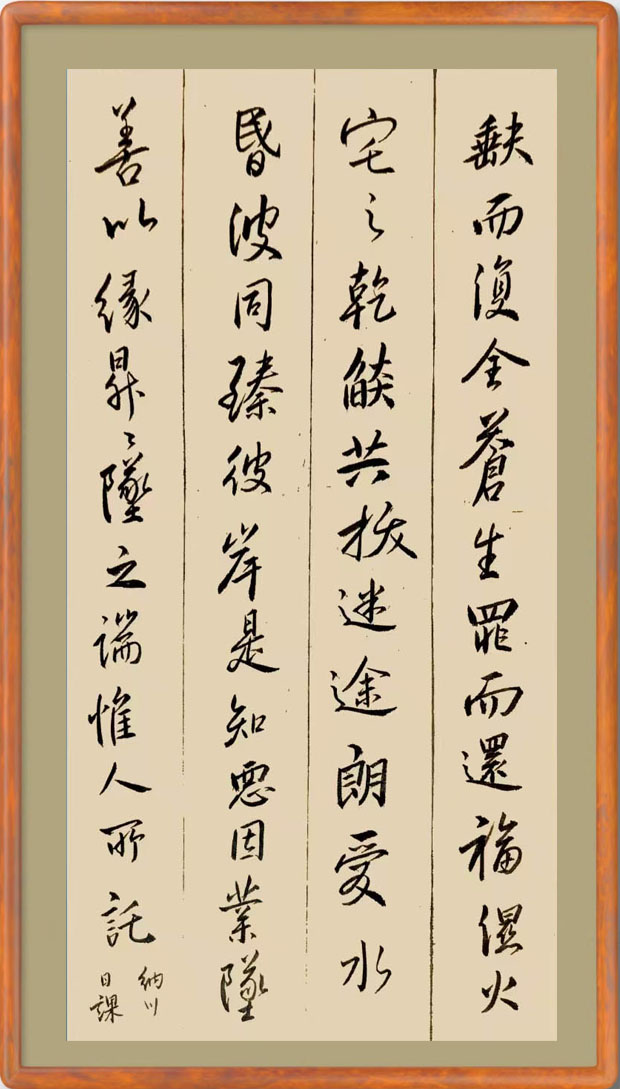 缺而復全蒼生罪而還福濕火
宅之乾燄共拔迷途朗愛水
昏波同臻彼岸是知惡因業墜
善以緣昇〻墜之端惟人所託
納川
日課